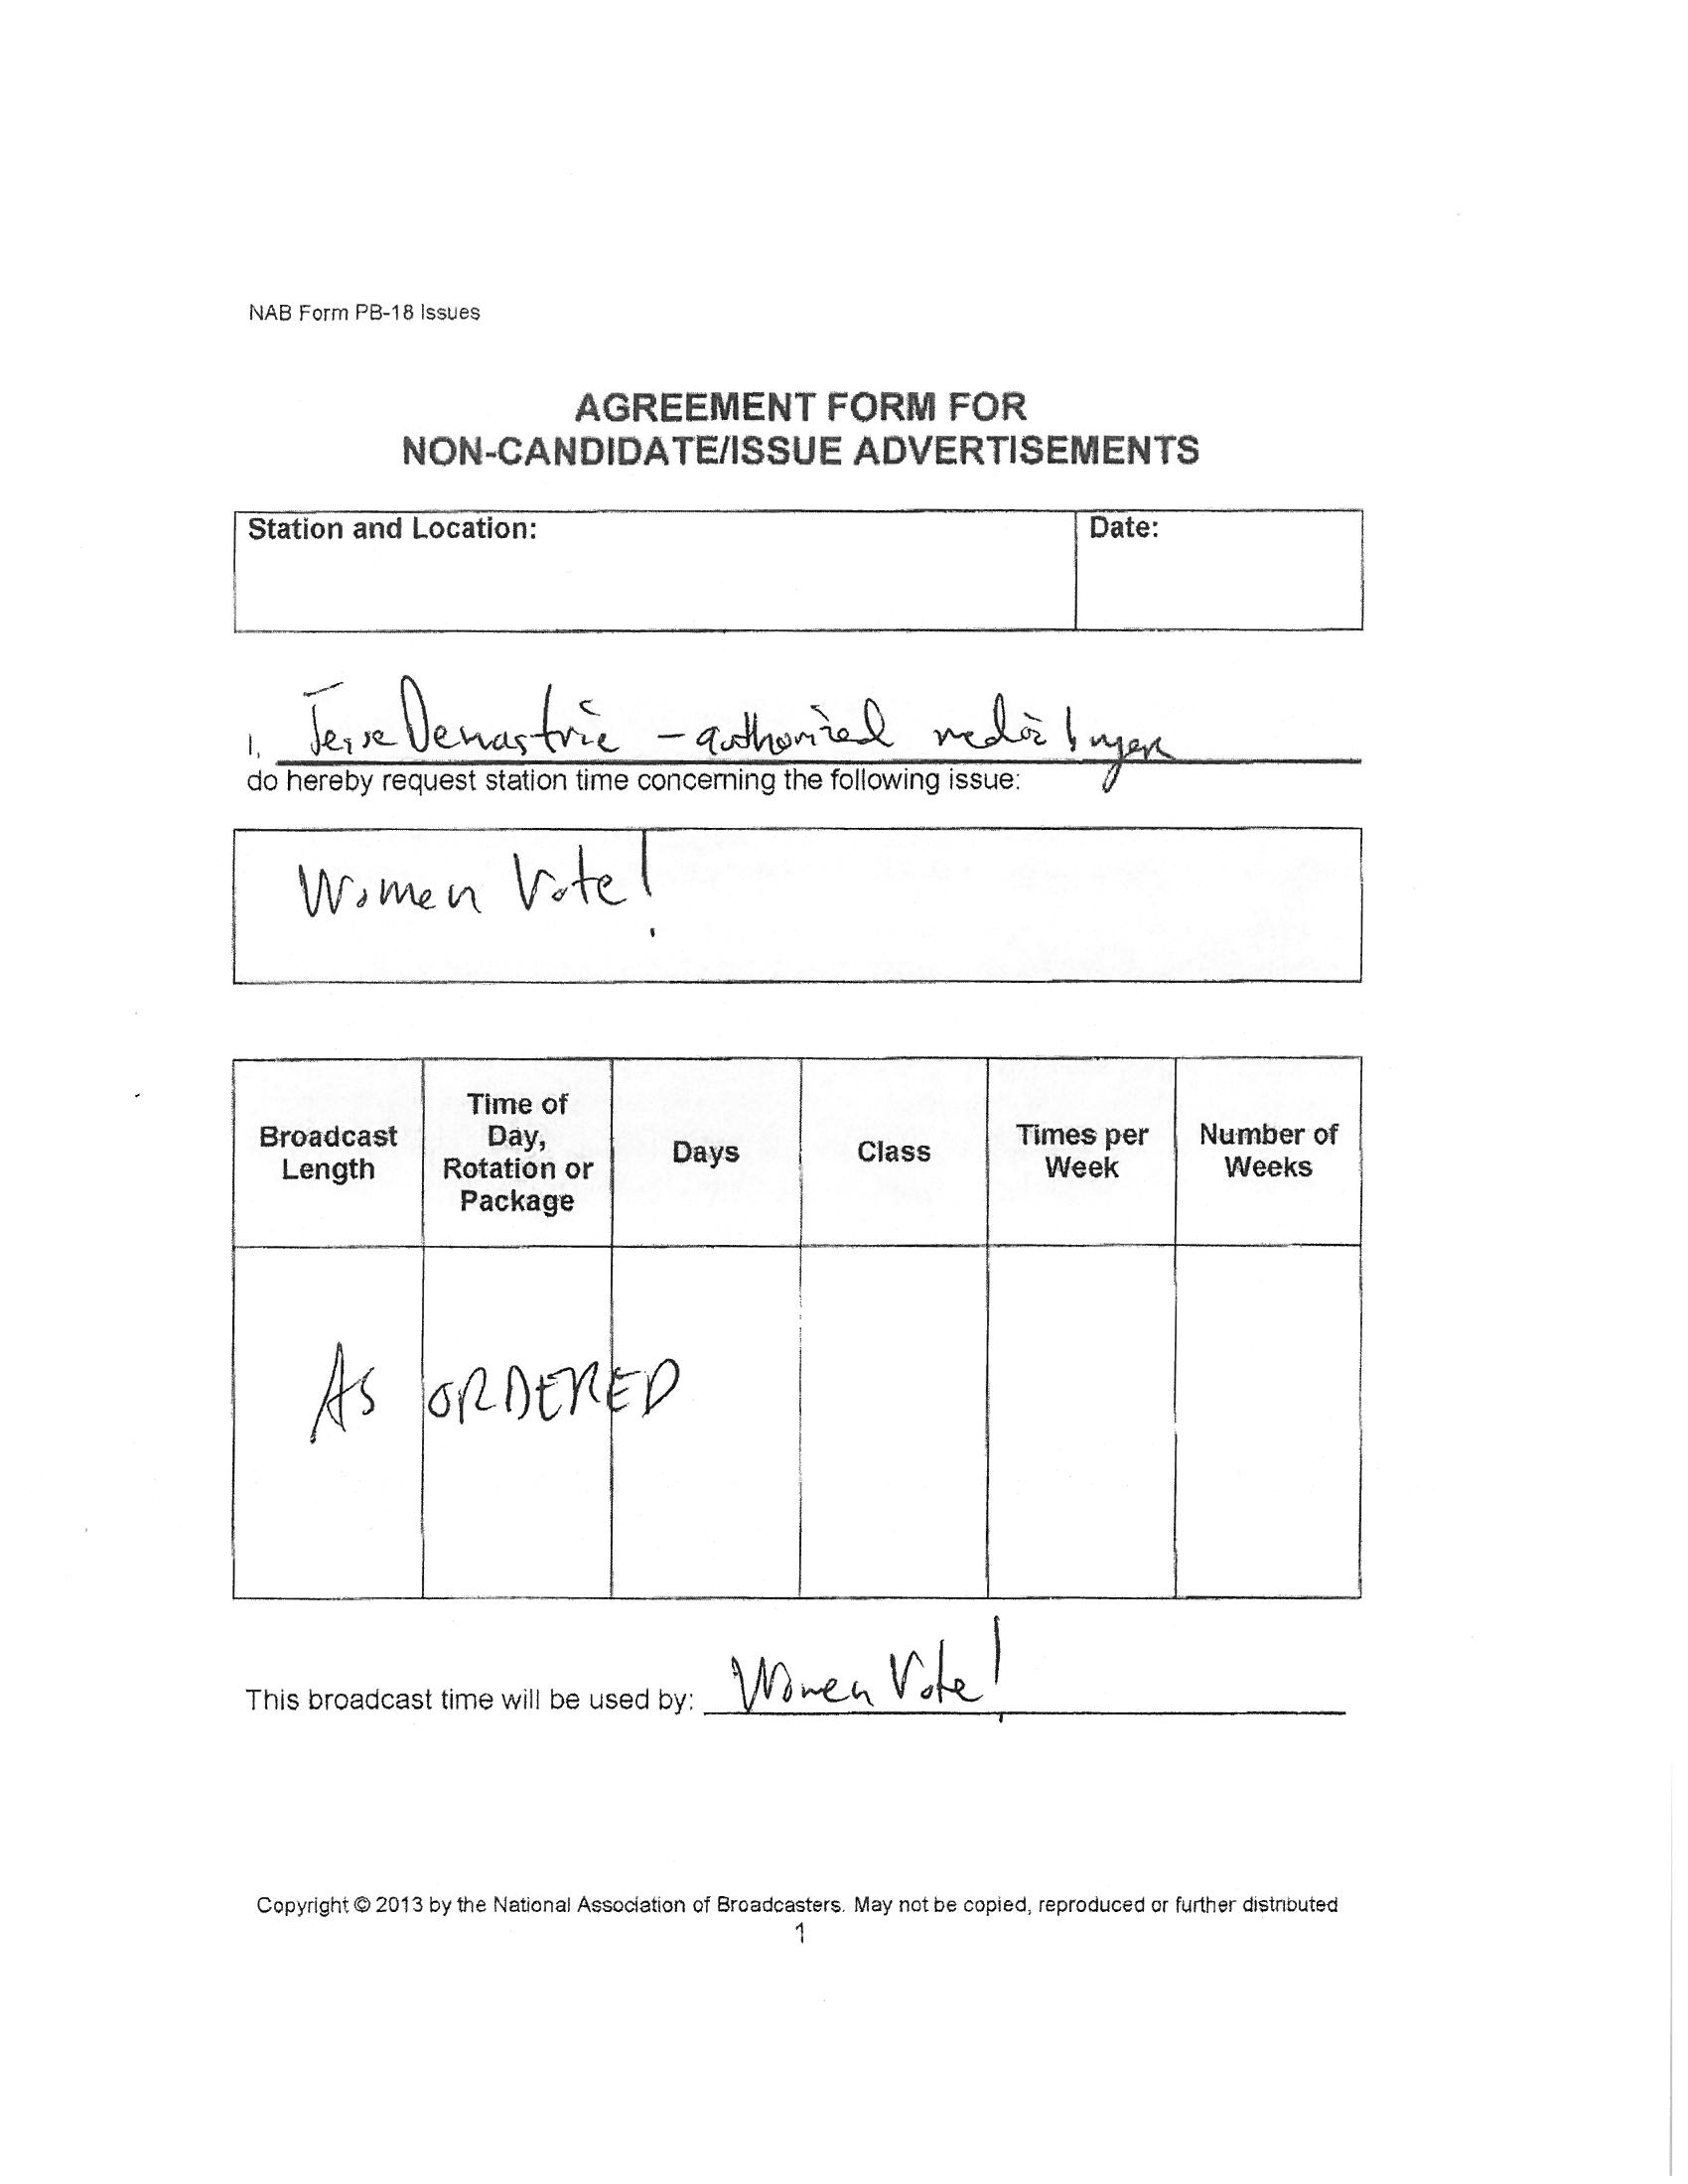 NAB Form PB-18 Issues
AGREEMENT FORM FOR
NON-CANDIDATE/ISSUE ADVERTISEMENTS
Station and Location:
Date:
I, Jesse Demastrie - authorized media buyer
do hereby request station time concerning the following issue:
Women Vote!
Broadcast Length
Time of Day, Rotation or Package
Days
Class
Times per Week
Number of Weeks
AS ORDERED
This broadcast time will be used by: Women Vote!
Copyright © 2013 by the National Association of Broadcasters. May not be copied, reproduced or further distributed
1